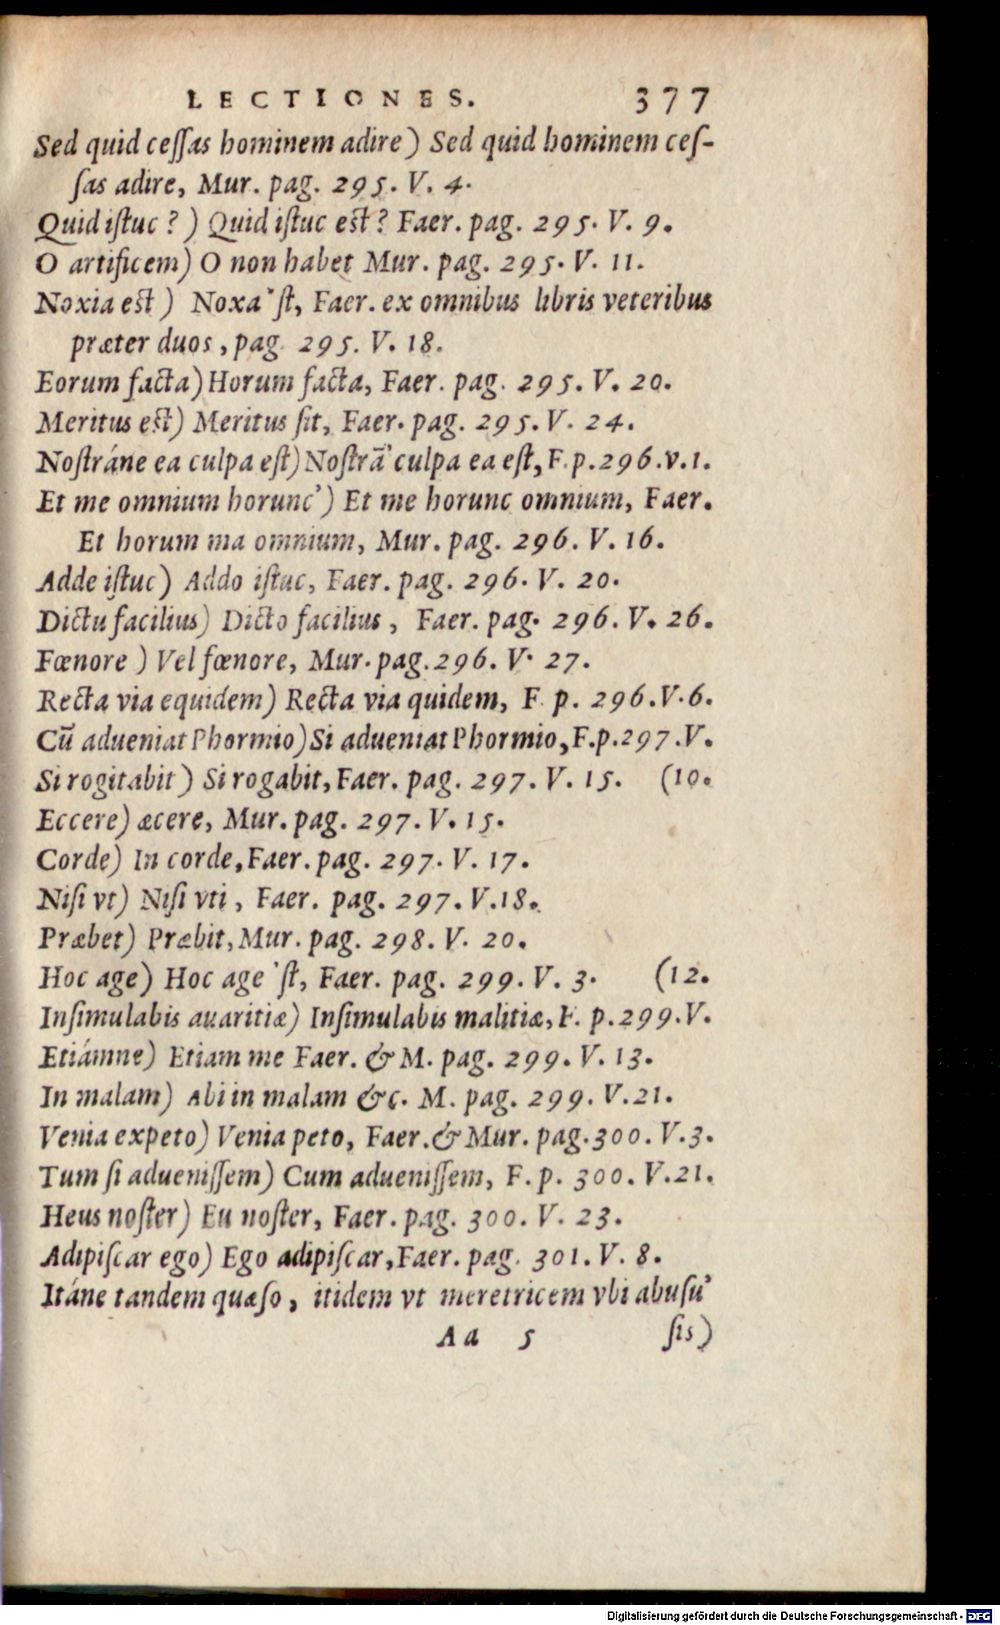 LECTIONES. 377
Sed quid ceſſas hominem adire) Sed quid hominem ceſ-
ſas adire, Mur. pag. 295. V. 4.
Quid iſtuc ? ) Quid iſtuc eſt ? Faer. pag. 295. V. 9.
O artificem) O non habet Mur. pag. 295. V. 11.
Noxia eſt ) Noxa 'ſt, Faer. ex omnibus libris veteribus
præter duos, pag. 295. V. 18.
Eorum facta) Horum facta, Faer. pag. 295. V. 20.
Meritus eſt) Meritus ſit, Faer. pag. 295. V. 24.
Noſtráne ea culpa eſt) Noſtrā' culpa ea eſt, F. p. 296. v. 1.
Et me omnium horunc') Et me horunc omnium, Faer.
Et horum ma omnium, Mur. pag. 296. V. 16.
Adde iſtuc) Addo iſtuc, Faer. pag. 296. V. 20.
Dictu facilius) Dicto facilius, Faer. pag. 296. V. 26.
Fœnore ) Vel fœnore, Mur. pag. 296. V. 27.
Recta via equidem) Recta via quidem, F. p. 296. V. 6.
Cū adueniat Phormio) Si adueniat Phormio, F. p. 297. V.
Si rogitabit ) Si rogabit, Faer. pag. 297. V. 15. (10.
Eccere) æcere, Mur. pag. 297. V. 15.
Corde) In corde, Faer. pag. 297. V. 17.
Niſi vt) Niſi vti, Faer. pag. 297. V. 18.
Præbet) Præbit, Mur. pag. 298. V. 20.
Hoc age) Hoc age 'ſt, Faer. pag. 299. V. 3. (12.
Inſimulabis auaritiæ) Inſimulabis malitiæ, F. p. 299. V.
Etiámne) Etiam me Faer. & M. pag. 299. V. 13.
In malam) Abi in malam &c. M. pag. 299. V. 21.
Venia expeto) Venia peto, Faer. & Mur. pag. 300. V. 3.
Tum ſi adueniſſem) Cum adueniſſem, F. p. 300. V. 21.
Heus noſter) Eu noſter, Faer. pag. 300. V. 23.
Adipiſcar ego) Ego adipiſcar, Faer. pag. 301. V. 8.
Itáne tandem quæſo, itidem vt meretricem vbi abuſu'
Aa 5 ſis)
Digitalisierung gefördert durch die Deutsche Forschungsgemeinschaft - DFG